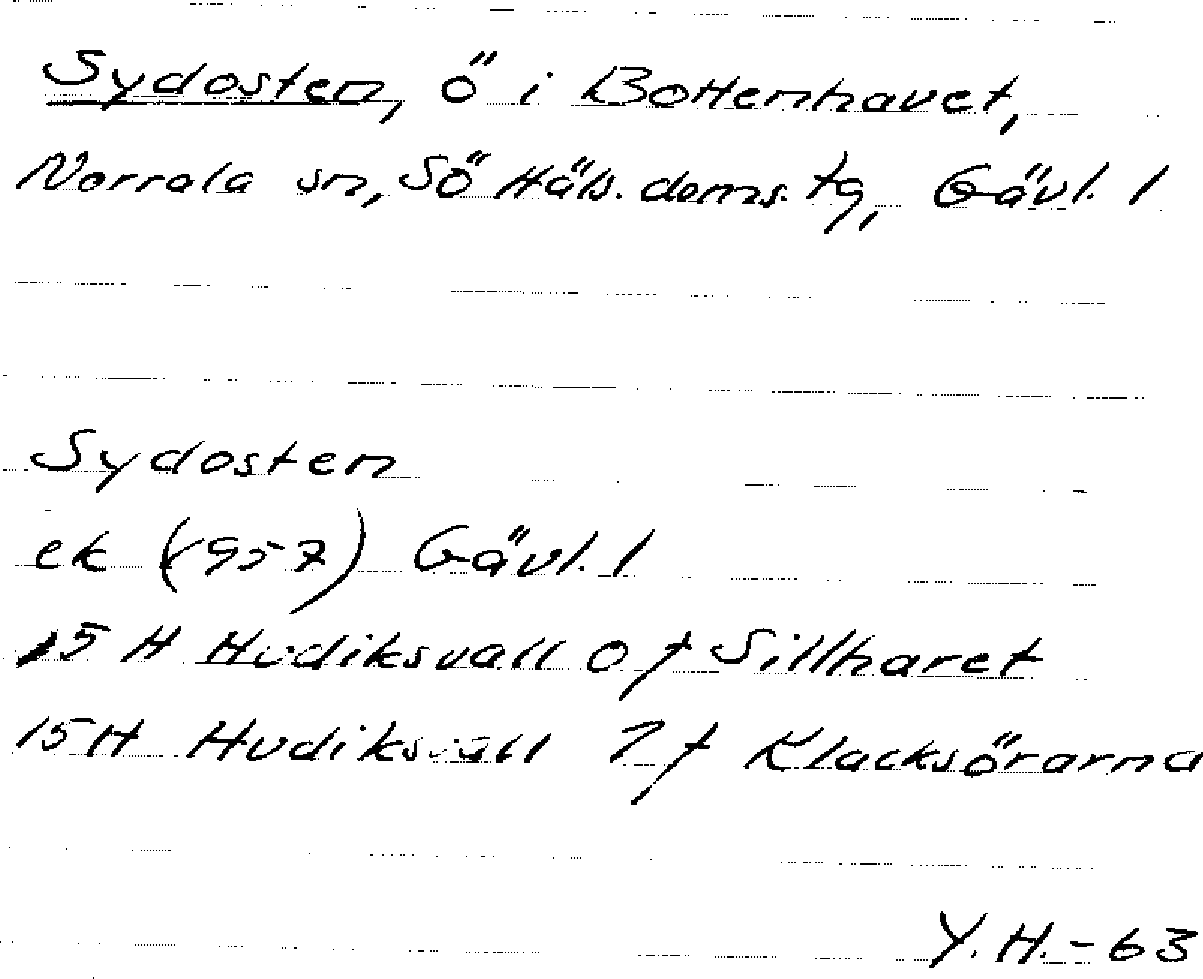 Sydosten, ö i Bottenhavet,
Norrala sn, Sö Häls. doms. tg, Gävl. l
Sydosten
ek (1957) Gävl. l
15 H Hudiksvall 0 f Sillharet
15H Hudiksvall 7 f Klacksörarna
Y.H.-63